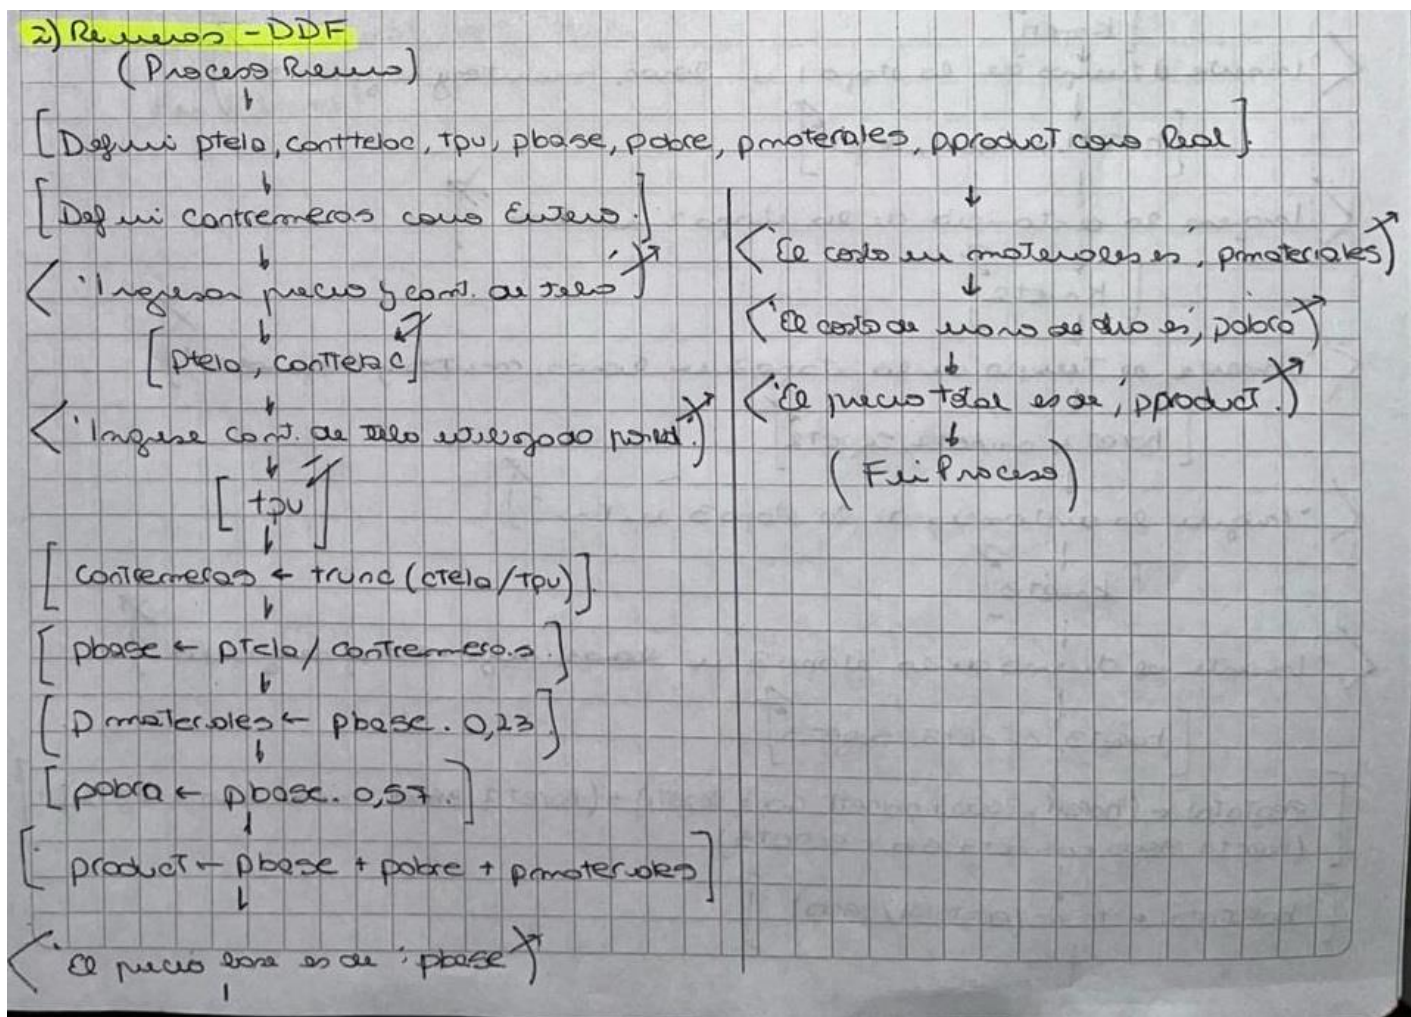 2) Remeros - DDF
(Proceso Remo)
[Definir ptela, conttelac, tpu, pbase, pobre, pmateriales, pproduct como Real]
[Definir contremeros como Entero.]
'Ingresar precio y cant. de tela'
[ptela, conttelac]
'Ingrese cant. de tela utilizada por'
[tpu]
[contremeras ← trunc (ctela/tpu)]
[pbase ← ptela/contremeras.]
[pmateriales ← pbase . 0,23]
[pobra ← pbase. 0,57.]
[product ← pbase + pobre + pmateriales]
'El precio base es de', pbase
'El costo en materiales es', pmateriales
'El costo de mano de obra es', pobra
'El precio total es de', pproduct.
(Fin Proceso)